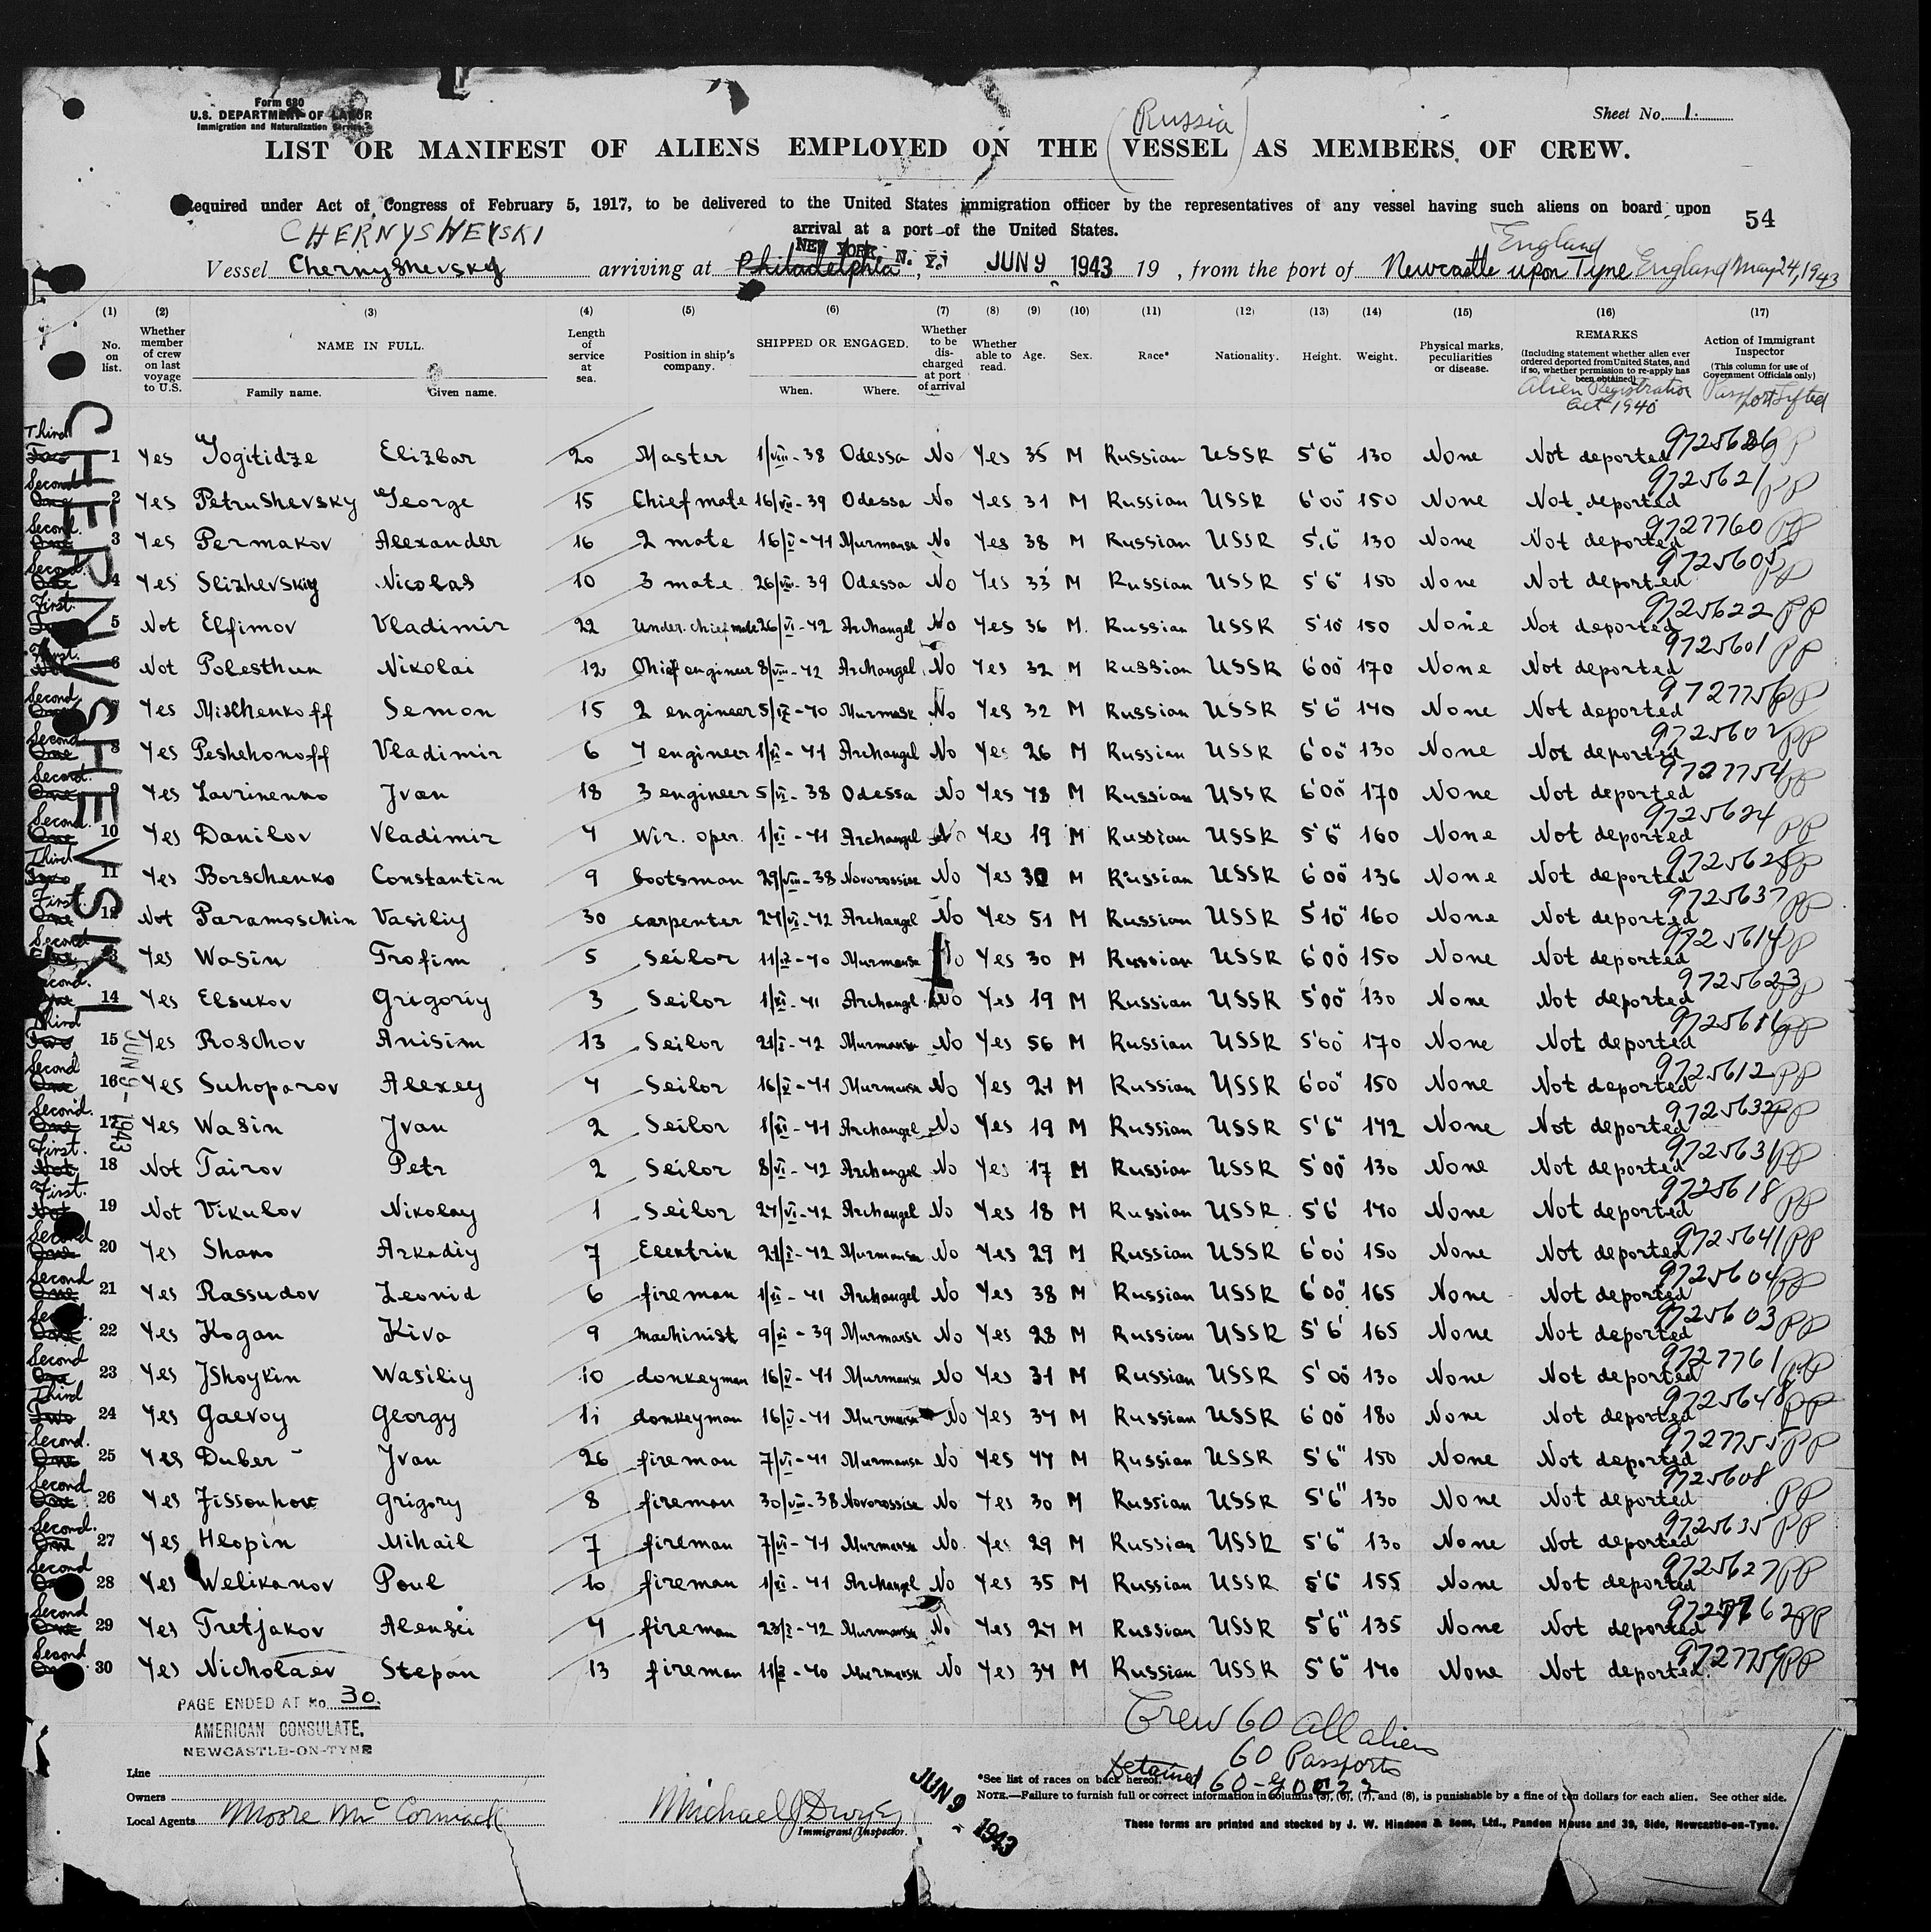 Form 680
U.S. DEPARTMENT OF LABOR
Immigration and Naturalization Service
Sheet No. 1.
(Russia)
LIST OR MANIFEST OF ALIENS EMPLOYED ON THE VESSEL AS MEMBERS OF CREW.
Required under Act of Congress of February 5, 1917, to be delivered to the United States immigration officer by the representatives of any vessel having such aliens on board upon
arrival at a port of the United States.
54
CHERNYSHEVSKI
NEW YORK, N. Y.
England
Vessel Chernyshevsky arriving at Philadelphia, JUN 9 1943 19 , from the port of Newcastle upon Tyne England May 24, 1943
(1) (2) (3) (4) (5) (6) (7) (8) (9) (10) (11) (12) (13) (14) (15) (16) (17)
No. on list. Whether member of crew on last voyage to U.S. NAME IN FULL. Family name. Given name. Length of service at sea. Position in ship's company. SHIPPED OR ENGAGED. When. Where. Whether to be discharged at port of arrival Whether able to read. Age. Sex. Race* Nationality. Height. Weight. Physical marks, peculiarities or disease. REMARKS (Including statement whether alien ever ordered deported from United States, and if so, whether permission to re-apply has been obtained) Action of Immigrant Inspector (This column for use of Government Officials only)
Alien Registration Act 1940 Passport Lifted
CHERNYSHEVSKI
JUN 9 - 1943
Third Two 1 Yes Gogitidze Elizbar 20 Master 1/VIII - 38 Odessa No Yes 35 M Russian USSR 5'6" 130 None Not deported PP
Second One 2 Yes Petrushevsky George 15 Chief mate 16/VII - 39 Odessa No Yes 31 M Russian USSR 6'00 150 None Not deported 9725621 PP
Second One 3 Yes Permakov Alexander 16 2 mate 16/V - 41 Murmansk No Yes 38 M Russian USSR 5'6" 130 None Not deported 9727760 PP
Second One 4 Yes Slizhevskiy Nicolas 10 3 mate 26/VIII - 39 Odessa No Yes 33 M Russian USSR 5'6" 150 None Not deported 9725605 PP
First 5 Not Elfimov Vladimir 22 Under chief mate 26/VI - 42 Archangel No Yes 36 M. Russian USSR 5'10 150 None Not deported 9725622 PP
First Not 6 Not Polesthuk Nikolai 12 Chief engineer 8/VIII - 42 Archangel No Yes 32 M Russian USSR 6'00 170 None Not deported 9725601 PP
Second One Yes Mishhenkoff Semon 15 2 engineer 5/IX - 40 Murmask No Yes 32 M Russian USSR 5'6" 140 None Not deported 9727756 PP
Second One 8 Yes Peshehonoff Vladimir 6 4 engineer 1/VI - 41 Archangel No Yes 26 M Russian USSR 6'00" 130 None Not deported 9725602 PP
Second One 9 Yes Lavrinenko Jvan 18 3 engineer 5/VI - 38 Odessa No Yes 48 M Russian USSR 6'00 170 None Not deported 9727754 PP
Second One 10 Yes Danilov Vladimir 4 Wir. oper. 1/VI - 41 Archangel No Yes 19 M Russian USSR 5'6" 160 None Not deported 9725624 PP
Third Two 11 Yes Borschenko Constantin 9 bootsman 29/VIII - 38 Novorossisk No Yes 30 M Russian USSR 6'00" 136 None Not deported 9725625 PP
First One 12 Not Paramoschin Vasiliy 30 carpenter 24/VI - 42 Archangel No Yes 51 M Russian USSR 5'10" 160 None Not deported 9725637 PP
Second One 13 Yes Wasin Trofim 5 Seilor 11/IX - 40 Murmansk No Yes 30 M Russian USSR 6'00 150 None Not deported 9725614 PP
Second One 14 Yes Elsukov Grigoriy 3 Seilor 1/VI - 41 Archangel No Yes 19 M Russian USSR 5'00" 130 None Not deported 9725623 PP
Third Two 15 Yes Roschov Anisim 13 Seilor 21/I - 42 Murmansk No Yes 56 M Russian USSR 5'00 170 None Not deported PP
Second One 16 Yes Suhoparov Alexey 4 Seilor 16/V - 41 Murmansk No Yes 21 M Russian USSR 6'00" 150 None Not deported 9725612 PP
Second One 17 Yes Wasin Jvan 2 Seilor 1/VI - 41 Archangel No Yes 19 M Russian USSR 5'6" 142 None Not deported PP
First Not 18 Not Tairov Petr 2 Seilor 8/VI - 42 Archangel No Yes 17 M Russian USSR 5'00" 130 None Not deported 9725631 PP
First Not 19 Not Vikulov Nikolay 1 Seilor 24/VI - 42 Archangel No Yes 18 M Russian USSR 5'6' 140 None Not deported 9725618 PP
Second One 20 Yes Shans Arkadiy 7 Elektrik 21/I - 42 Murmansk No Yes 29 M Russian USSR 6'00' 150 None Not deported 9725641 PP
Second One 21 Yes Rassudov Leonid 6 fireman 1/VI - 41 Archangel No Yes 38 M Russian USSR 6'00" 165 None Not deported 9725604 PP
Second One 22 Yes Kogan Kiva 9 machinist 9/XI - 39 Murmansk No Yes 28 M Russian USSR 5'6' 165 None Not deported 9725603 PP
Second One 23 Yes Jshoykin Wasiliy 10 donkeyman 16/V - 41 Murmansk No Yes 31 M Russian USSR 5'00 130 None Not deported 9727761 PP
Third Two 24 Yes Gaevoy Georgy 11 donkeyman 16/V - 41 Murmansk No Yes 34 M Russian USSR 6'00" 180 None Not deported 9725648 PP
Second One 25 Yes Duber Jvan 26 fireman 7/VI - 41 Murmansk No Yes 44 M Russian USSR 5'6" 150 None Not deported 9727755 PP
Second One 26 Yes Grigory 8 fireman 30/VIII - 38 Novorossisk No Yes 30 M Russian USSR 5'6" 130 None Not deported 9725608 PP
Second One 27 Yes Hlopin Mihail 7 fireman 7/VI - 41 Murmansk No Yes 29 M Russian USSR 5'6" 130 None Not deported 9725635 PP
Second One 28 Yes Welikanov Poul 10 fireman 1/VI - 41 Archangel No Yes 35 M Russian USSR 5'6" 155 None Not deported 9725627 PP
Second One 29 Yes Tretjakov Aleksei 4 fireman 23/I - 42 Murmansk No Yes 24 M Russian USSR 5'6" 135 None Not deported 9727762 PP
Second One 30 Yes Nicholaev Stepan 13 fireman 11/IX - 40 Murmansk No Yes 34 M Russian USSR 5'6" 140 None Not deported 9727759 PP
PAGE ENDED AT No. 30.
AMERICAN CONSULATE,
NEWCASTLE-ON-TYNE
Crew 60 All aliens
60 Passports
Detained 60
Line
Owners
Local Agents Moore McCormack
Michael J Dwyer
Immigrant Inspector.
JUN 9 - 1943
*See list of races on back hereof.
NOTE.—Failure to furnish full or correct information in columns (3), (5), (6), (7), and (8), is punishable by a fine of ten dollars for each alien. See other side.
These forms are printed and stocked by J. W. Hindson & Sons, Ltd., Pandon House and 39, Side, Newcastle-on-Tyne.